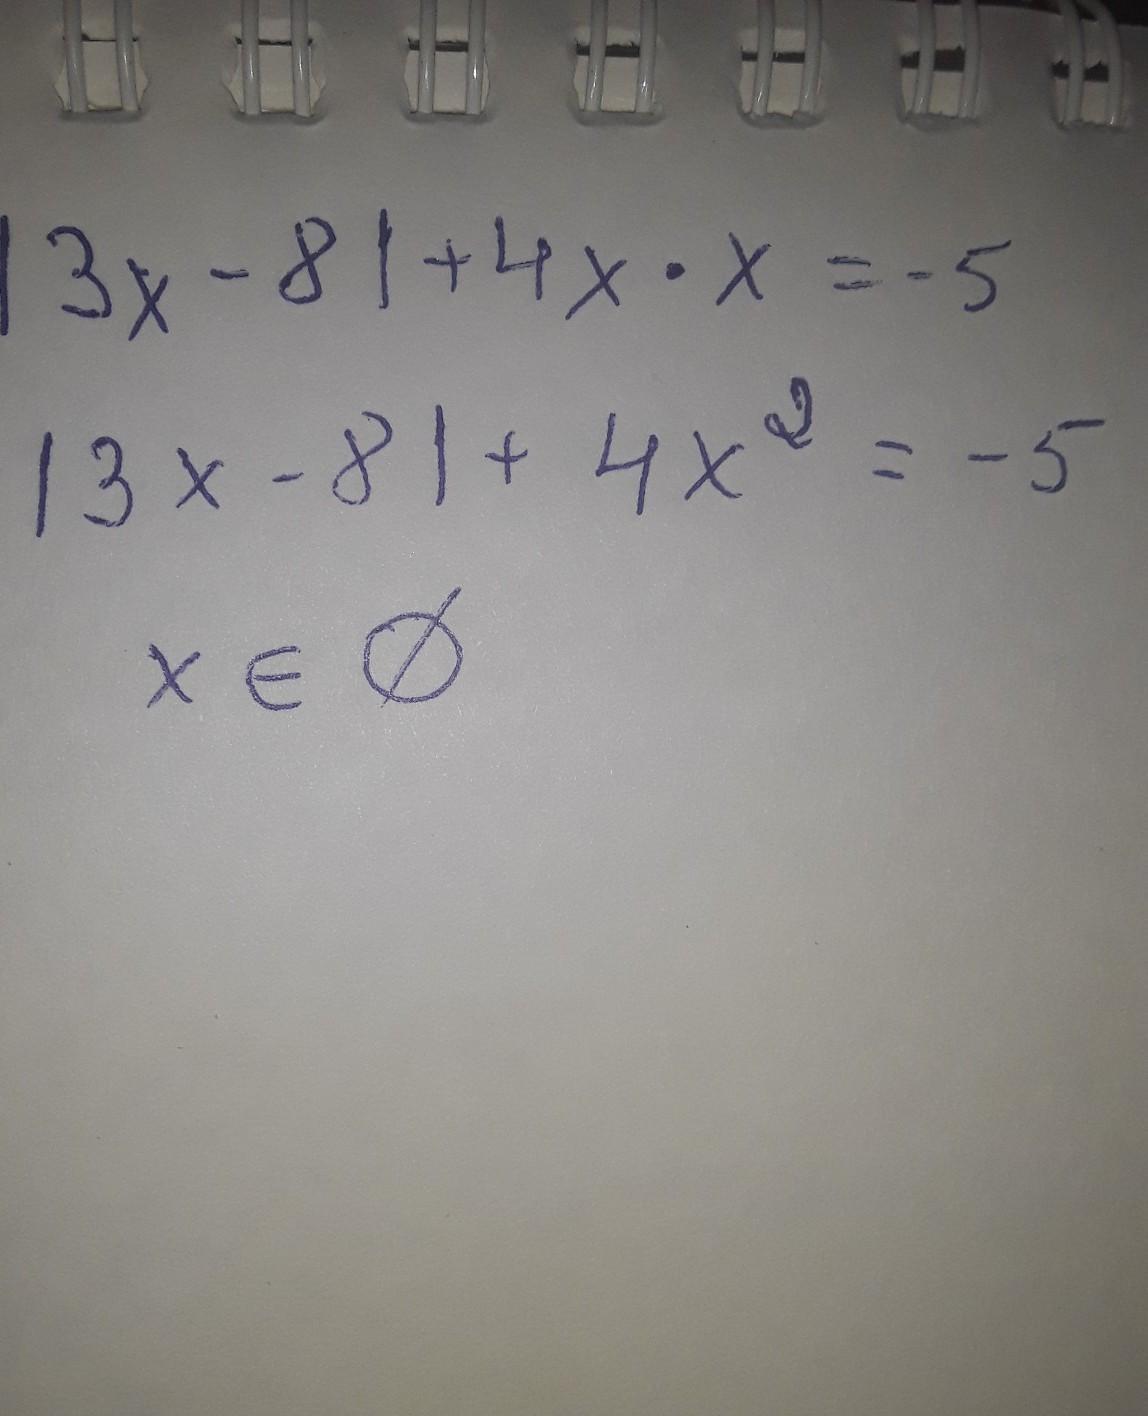 |3x - 8| + 4x · x = -5
|3x - 8| + 4x² = -5
x ∈ ∅